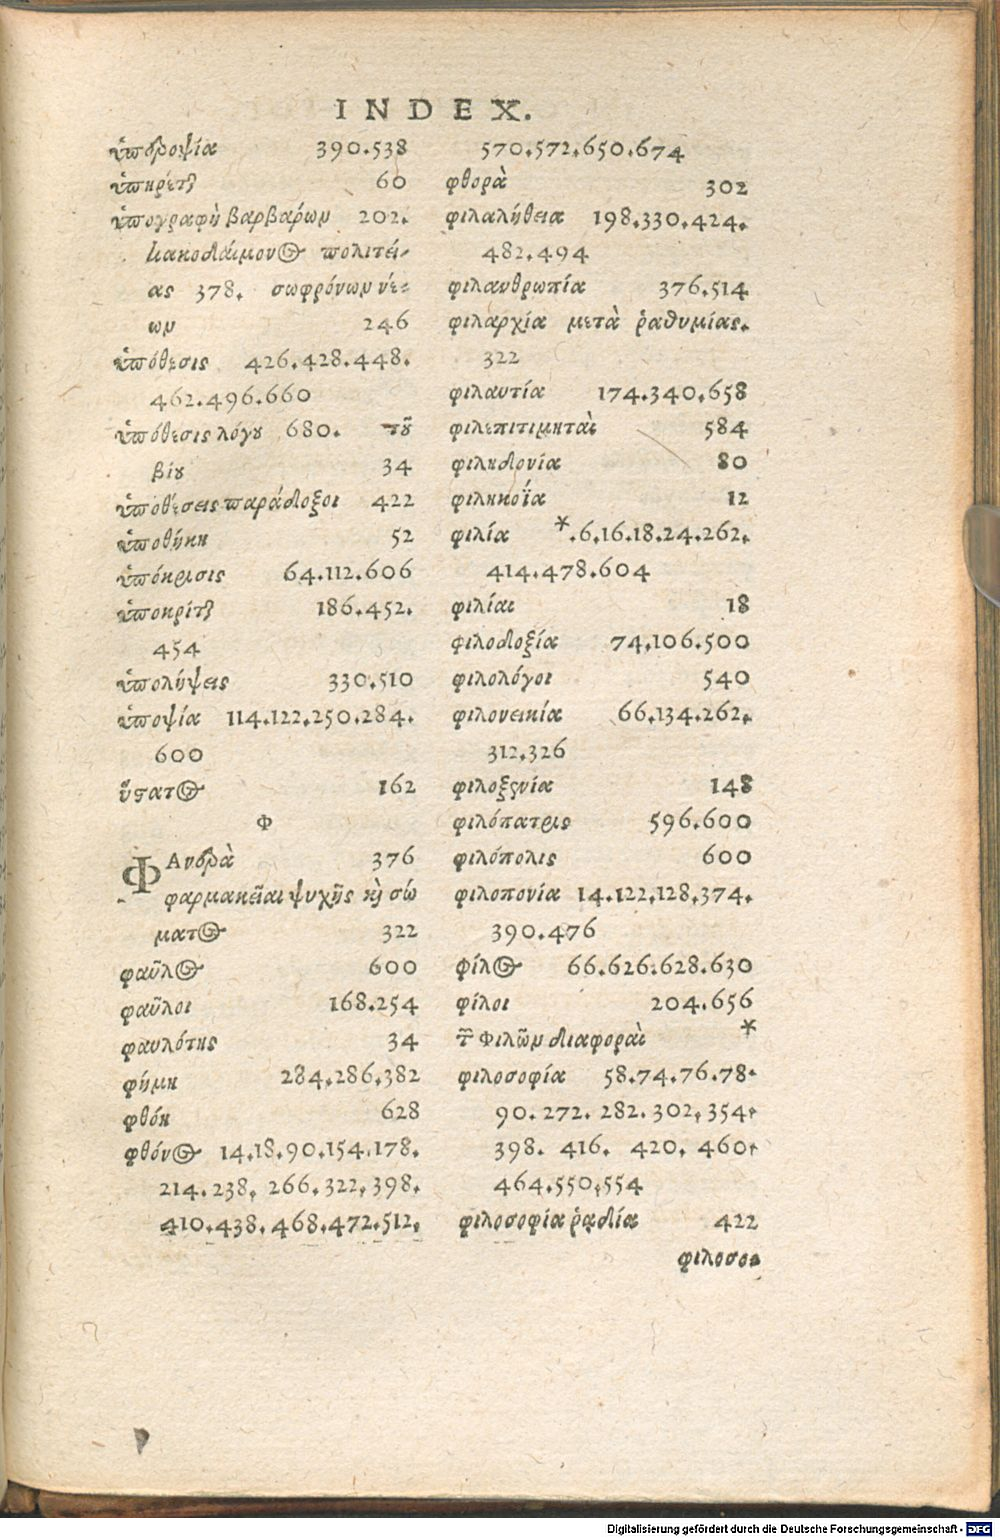 INDEX.
ὑποβοψία 390.538
ὑπηρέται 60
ὑπογραφὴ βαρβάρων 202.
κακοδαίμονος πολιτεί-
ας 378. σωφρόνων νέ-
ων 246
ὑπόθεσις 426.428.448.
462.496.660
ὑπόθεσις λόγου 680. τοῦ
βίου 34
ὑποθέσεις παράδοξοι 422
ὑποθήκη 52
ὑπόκρισις 64.112.606
ὑποκριταὶ 186.452.
454
ὑπολήψεις 330.510
ὑποψία 114.122.250.284.
600
ὕστατος 162
Φ
ΦΑνδρὰ 376
φαρμακεῖαι ψυχῆς καὶ σώ
ματος 322
φαῦλος 600
φαῦλοι 168.254
φαυλότης 34
φήμη 284.286.382
φθόη 628
φθόνος 14.18.90.154.178.
214.238. 266.322.398.
410.438.468.472.512.
570.572.650.674
φθορὰ 302
φιλαλήθεια 198.330.424.
482.494
φιλανθρωπία 376.514
φιλαρχία μετὰ ῥαθυμίας.
322
φιλαυτία 174.340.658
φιλεπιτιμηταὶ 584
φιληδονία 80
φιληκοΐα 12
φιλία *.6.16.18.24.262.
414.478.604
φιλίαι 18
φιλοδοξία 74.106.500
φιλολόγοι 540
φιλονεικία 66.134.262.
312.326
φιλοξενία 148
φιλόπατρις 596.600
φιλόπολις 600
φιλοπονία 14.122.128.374.
390.476
φίλος 66.626.628.630
φίλοι 204.656
τῶν Φιλῶν διαφοραὶ *
φιλοσοφία 58.74.76.78.
90. 272. 282. 302. 354.
398. 416. 420. 460.
464.550.554
φιλοσοφία ῥαδία 422
φιλοσο-
Digitalisierung gefördert durch die Deutsche Forschungsgemeinschaft - DFG